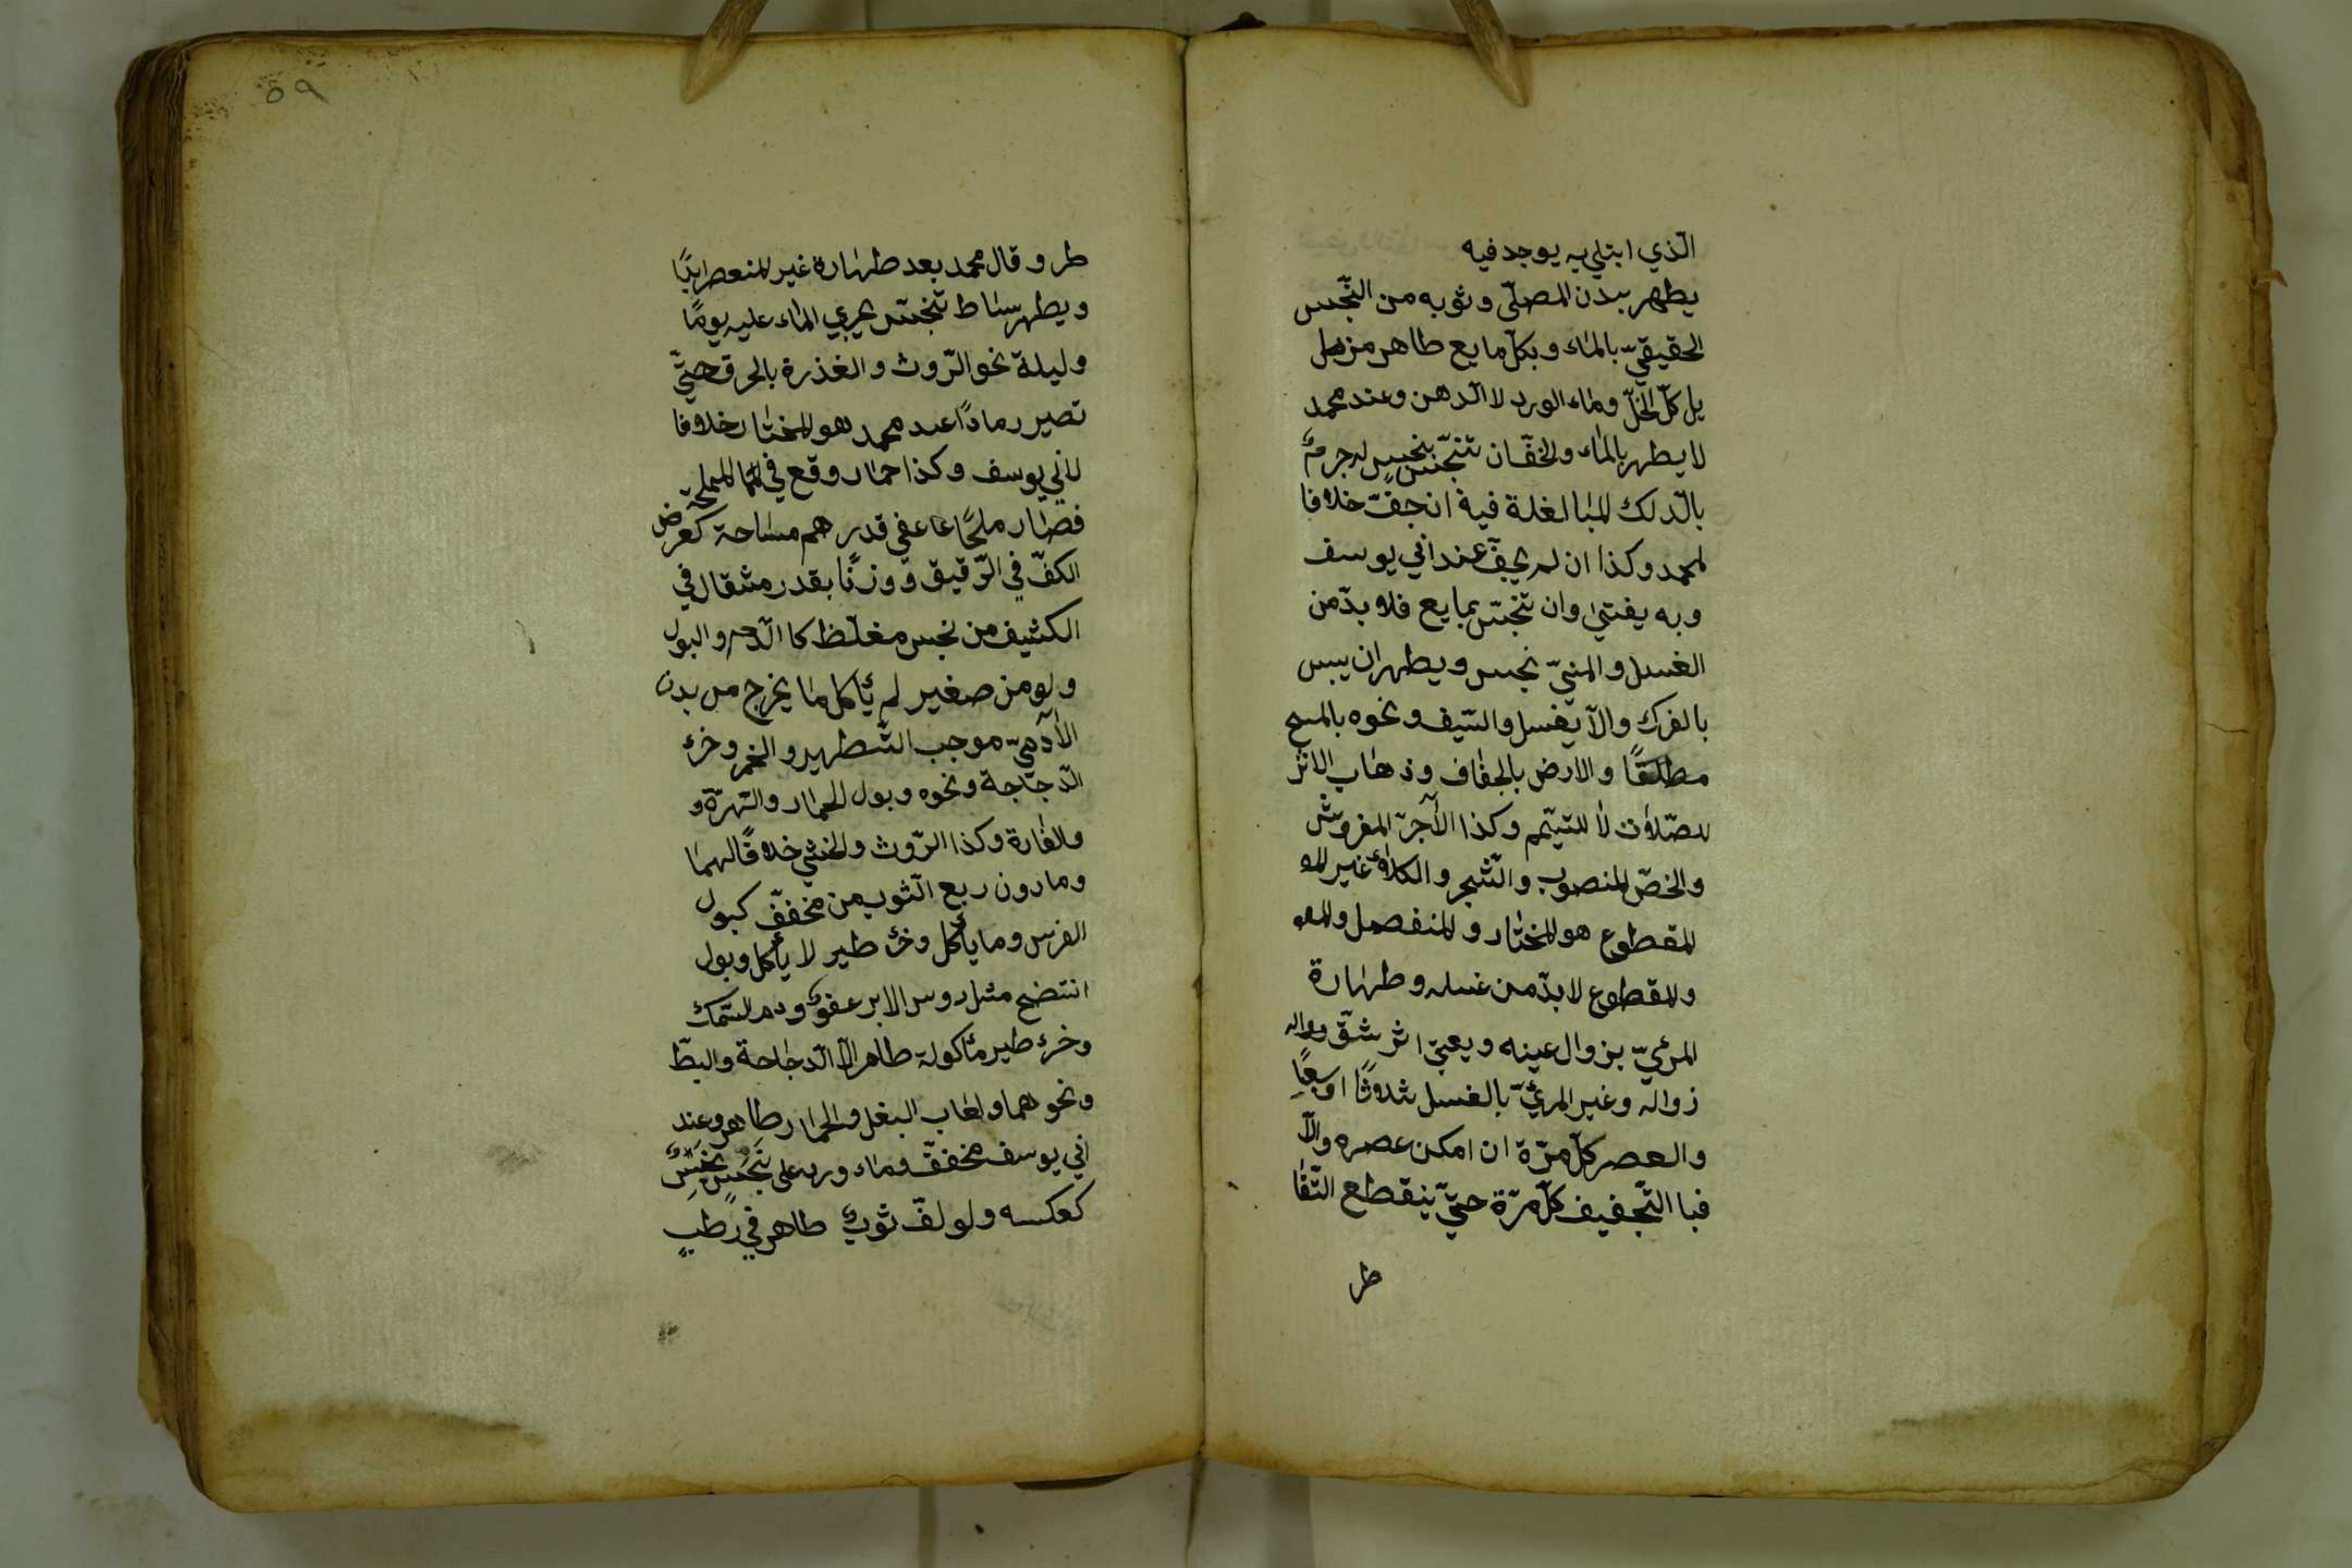 الّذي ابتلي به يوجد فيه
يطهر بدن المصلّي وثوبه من النّجس
الحقيقيّ بالماء وبكلّ مايع طاهر مزيل
يل كلّ الخلّ وماء الورد لا الدّهن وعند محمد
لا يطهر بالماء والخفّان تنجّس بنجس له جرمٌ
بالدّلك المباالغلة فية ان جفّ خلافا
لمحمد وكذا ان لم يجفّ عند ابي يوسف
وبه يفتى وان تنجّس بمايع فلا بدّ من
الغسل والمنيّ نجس ويطهر ان يبس
بالفرك والاّ يغسل والسّيف ونحوه بالمسح
مطلقًا والارض بالجفاف وذهاب الاثر
للصّلاة لا للتيمّم وكذا الآجرّ المفروش
والخصّ المنصوب والشّجر والكلاء غير الم
المقطوع هو المختار والمنفصل والم
والمقطوع لا بدّ من غسله وطهارة
المرئيّ بزوال عينه ويعبيّ اثر شقّ
زواله وغير المرئيّ بالغسل ثلاثًا او سبعًا
والعصر كلّ مرّة ان امكن عصره والاّ
فبا التّجفيف كلّ مرّة حتّي ينقطع التّقا
طر
٥٩
طر وقال محمد بعد طهارة غير المنعصر ابدًا
ويطهر بساط تنجّس يجري الماء عليه يومًا
وليلة نحو الرّوث والغذرة بالحرق حتّي
تصير رمادًا عند محمد هو المختار خلافا
لابي يوسف وكذا حمار وقع في المملحة
فصار ملحًا عفي قدر درهم مساحة كعرض
الكفّ في الرّقيق ووزنًا بقدر مثقال في
الكثيف من نجس مغلّظ كا الدّم والبول
ولو من صغير لم يأكل ما يخرج من بدن
الآدميّ موجب التّطهير والخمر وخرء
الدّجاجة ونحوه وبول الحمار والهرّة و
والفارة وكذا الرّوث والخثي خلافًا لهما
وما دون ربع الثوب من مخفّف كبول
الفرس وما يأكل وخرء طير لا يأكل وبول
انتضح مثل روس الابر عفوٌ ودم السّمك
وخرء طير مأكولة طاهر الاّ الدّجاجة والبطّ
ونحوهما ولعاب البغل والحمار طاهر وعند
ابي يوسف مخفّف وماء ورد على نجسٍ نجسٌ
كعكسه ولو لفّ ثوبٌ طاهر في رطبٍ